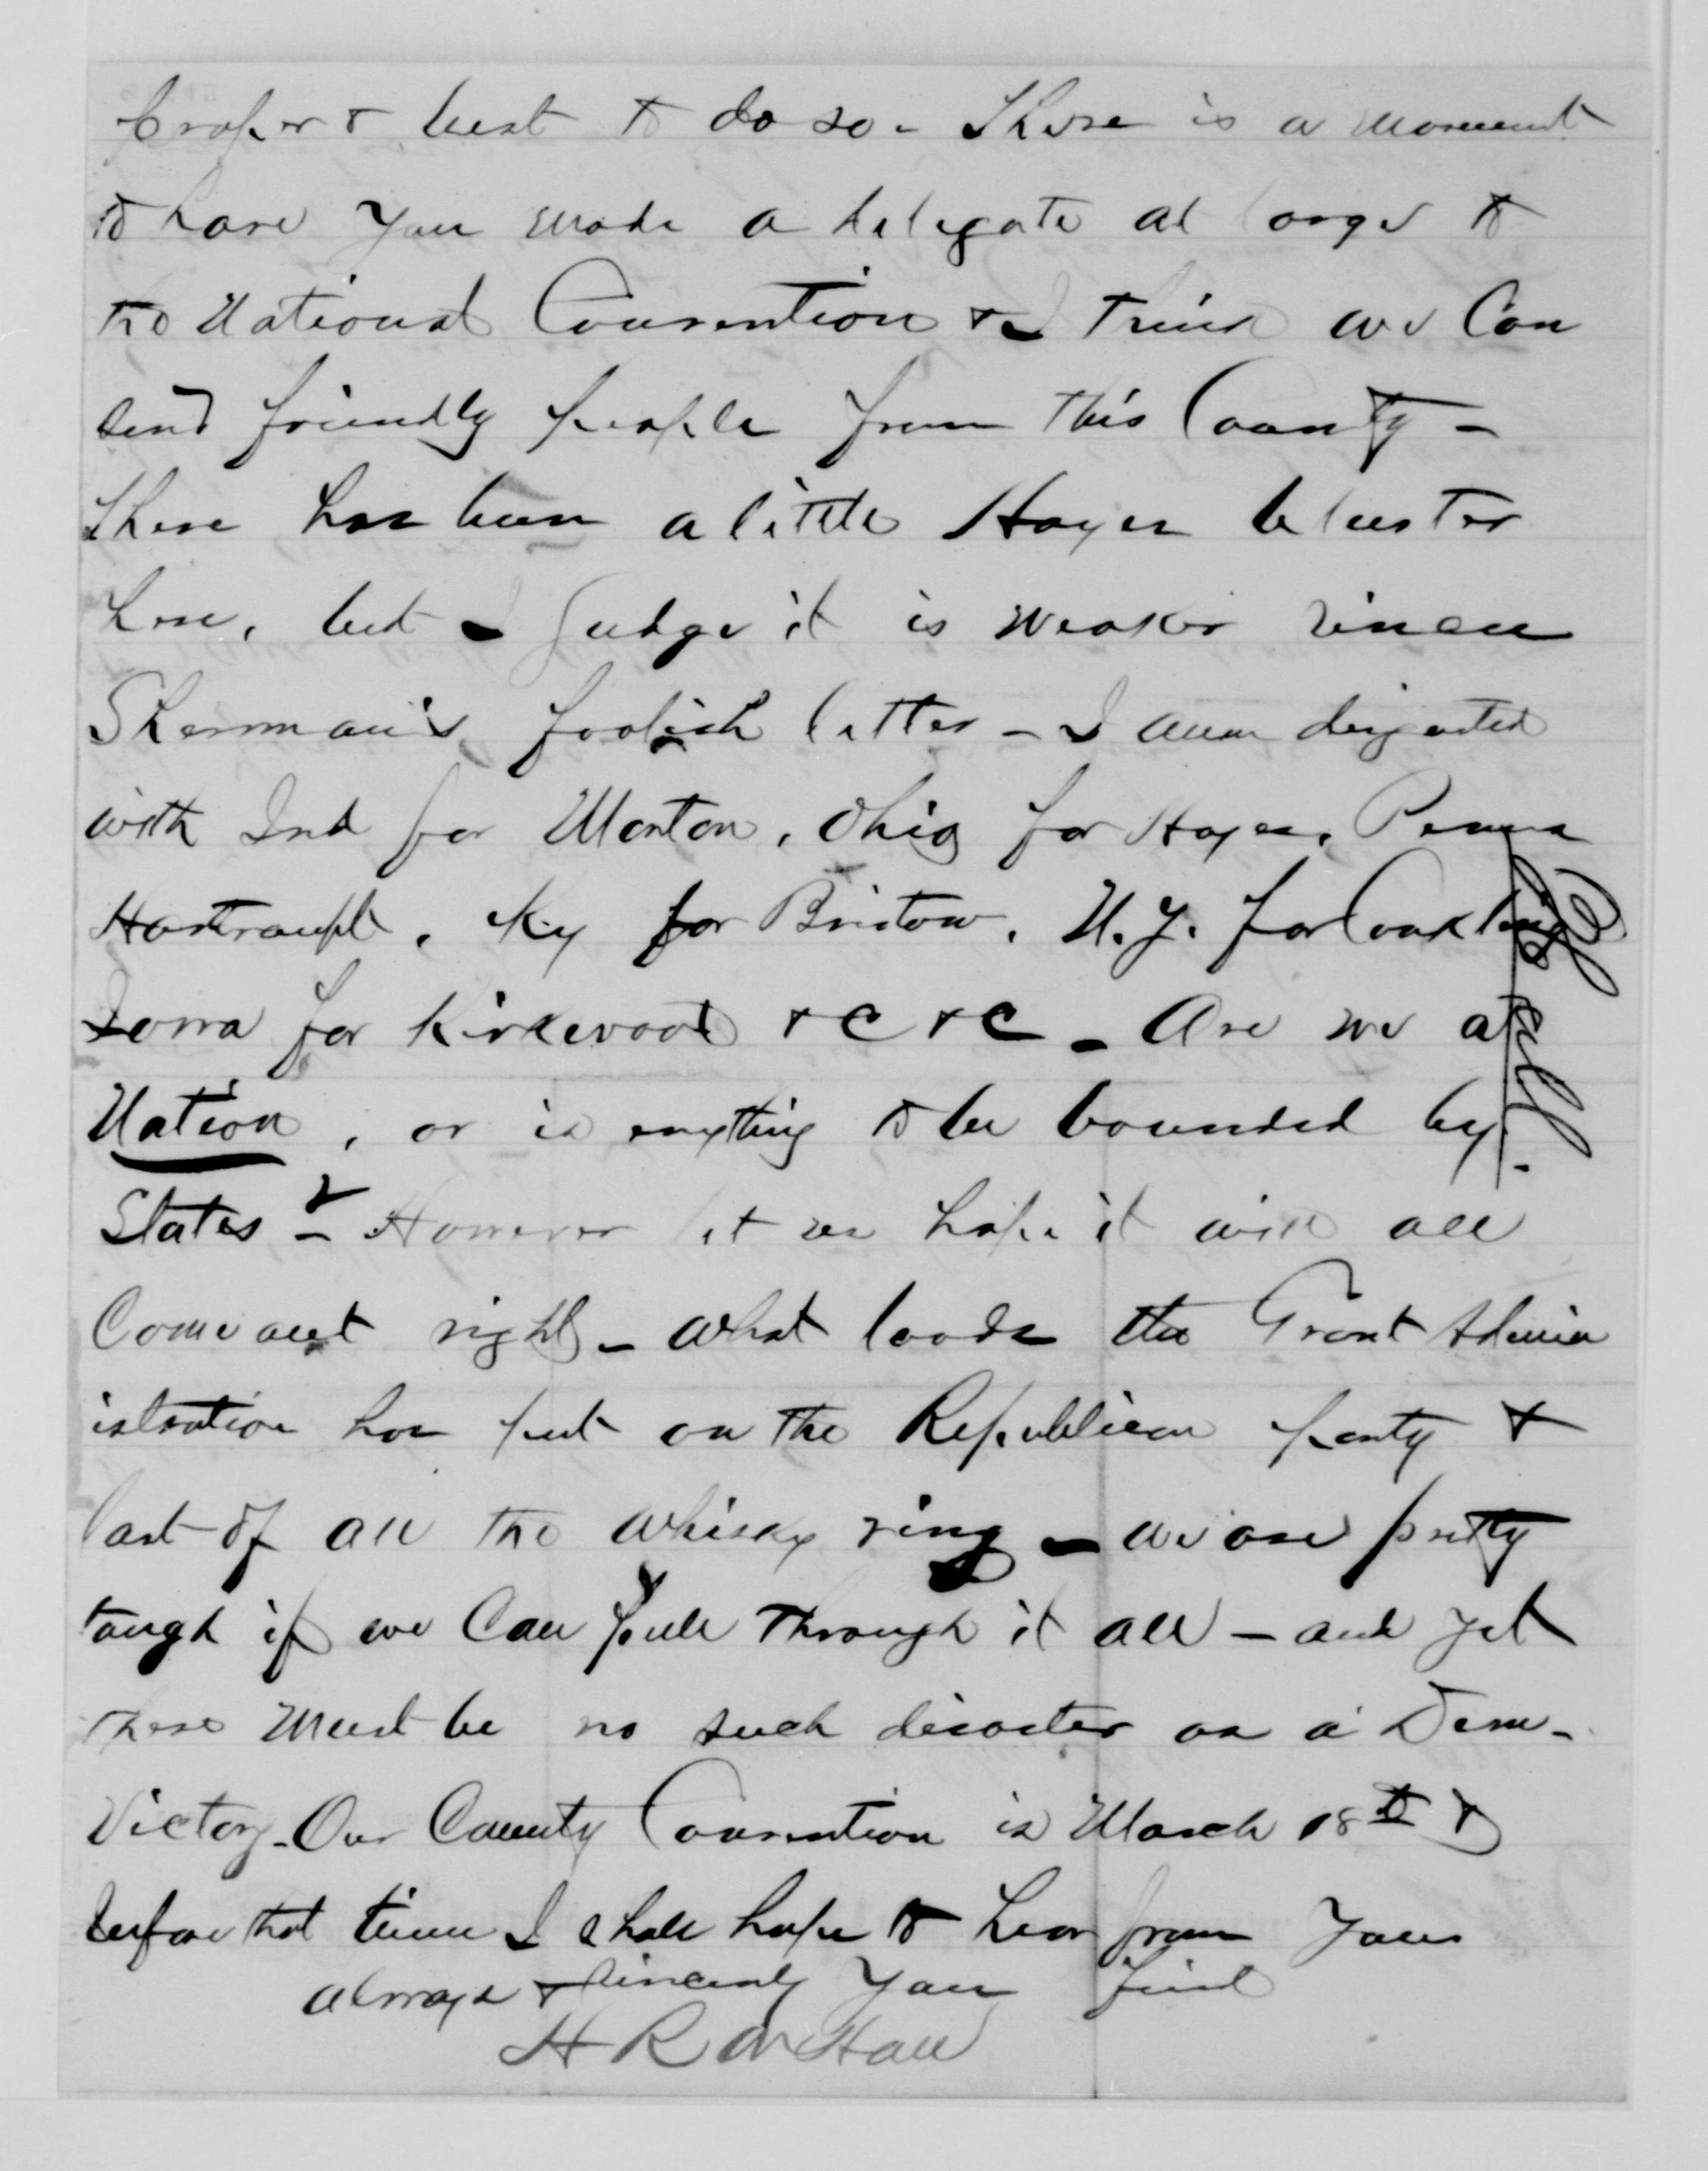 proper & best to do so - There is a movement
to have you made a delegate at large to
the National Convention & I think we can
send friendly people from this County -
There has been a little Hayes bluster
here, but I judge it is weaker since
Sherman's foolish letter - I am disgusted
with Ind for Morton, Ohio for Hayes, Penna
Hartranft, Ky for Bristow, N.Y. for Conkling
Iowa for Kirkwood &C &C - Are we a
Nation, or is anything to be bounded by
States? - However let us hope it will all
Come out right - What loads the Grant Admin
istration has put on the Republican party &
last of all the whisky ring - we are pretty
tough if we can pull through it all - and yet
there must be no such disaster as a Dem-
Victory - Our County Convention is March 18th &
before that time I shall hope to hear from you
always & sincerely your friend
H R W Hall
all.